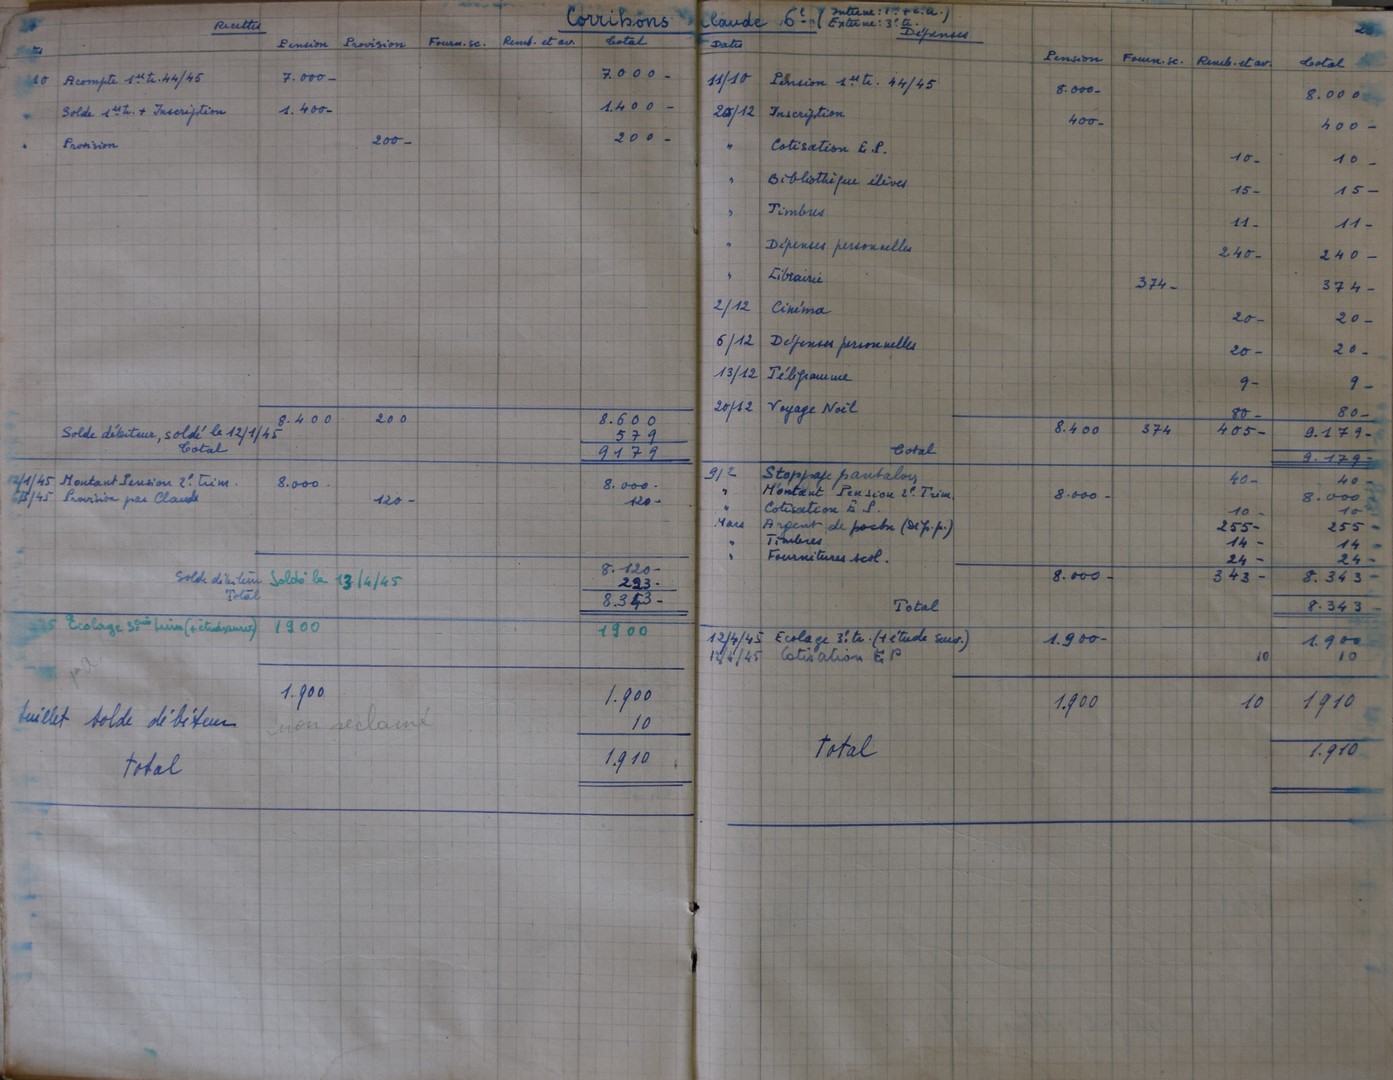 Recettes
Corribons Claude 6e (Interne: 1er + 2e tr.)
Externe: 3e tr.
Dépenses
Pension Provision Fourn. sc. Remb. et av. Total
10 Acompte 1er tr. 44/45 7.000- 7.000-
Solde 1er tr. + Inscription 1.400- 1.400-
" Provision 200- 200-
8.400 200 8.600
Solde débiteur, soldé le 12/1/45 579
Total 9179
12/1/45 Montant Pension 2e Trim. 8.000- 8.000-
/45 Provision par Claude 120- 120-
8.120-
Solde débiteur Soldé le 13/4/45 223-
Total 8.343-
Ecolage 3ème trim (+ étude surv.) 1900 1900
1.900 1.900
Juillet Solde débiteur non réclamé 10
Total 1.910
Dates Pension Fourn. sc. Remb. et av. Total
11/10 Pension 1er tr. 44/45 8.000- 8.000
20/12 Inscription 400- 400-
" Cotisation E.P. 10- 10-
" Bibliothèque élèves 15- 15-
" Timbres 11- 11-
" Dépenses personnelles 240- 240-
" Librairie 374- 374-
2/12 Cinéma 20- 20-
6/12 Dépenses personnelles 20- 20-
13/12 Télégramme 9- 9-
20/12 Voyage Noël 80- 80-
8.400 374 405- 9.179-
Total 9.179-
9/2 Stoppage pantalon 40- 40
" Montant Pension 2e Trim. 8.000- 8.000
" Cotisation E.P. 10- 10-
Mars Argent de poche (Dép. p.) 255- 255-
" Timbres 14- 14-
" Fournitures scol. 24- 24-
8.000- 343- 8.343-
Total 8.343-
12/4/45 Ecolage 3e tr. (+ étude surv.) 1.900- 1.900
/45 Cotisation E P 10 10
1.900 10 1910
Total 1.910